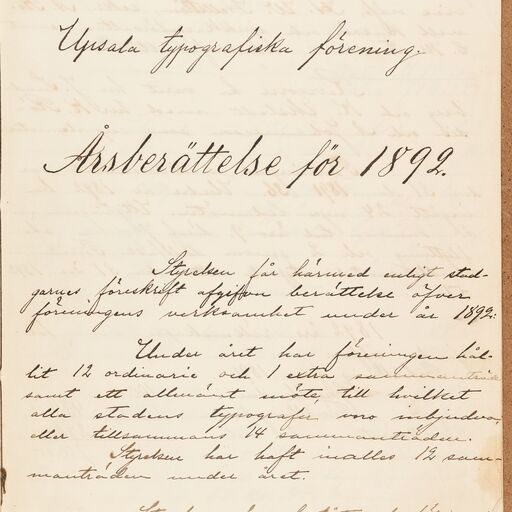 Upsala typografiska förening.
Årsberättelse för 1892.
Styrelsen får härmed enligt stad-
garnes föreskrift afgifva berättelse öfver
föreningens verksamhet under år 1892:
Under året har föreningen hål-
lit 12 ordinarie och 1 extra sammanträde
samt ett allmänt möte, till hvilket
alla stadens typografer voro inbjudna,
eller tillsammans 14 sammanträden.
Styrelsen har haft inalles 12 sam-
manträden under året.